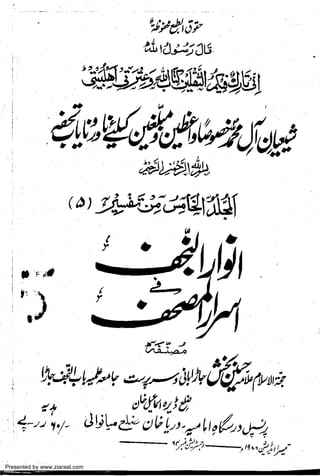 حقوق الطبع محفوظة
قال رسول الله
إني تارك فيكم الثقلين كتاب الله وعترتي أهلبيتي
شیعیان آل محمد خصوصاً واعظین و مبلغین کیلئے نادر و نایاب تحفہ
بسم الله الرحمن الرحيم
المجلد الخامس من تفسير (۵)
انوار النجف
في
اسرار المصحف
مصنفہ
حجۃ الاسلام علامہ حسین بخش جاڑا بانی و سرپرست جامعہ علمیہ باب النجف جاڑا
ضلع ڈیرہ اسماعیل خان
پرنسپل درسگاہ امامیہ دریا خان ضلع میانوالی
ہدیہ
۶۰/- روپے
۱۹۸۰
Presented by www.ziaraat.com